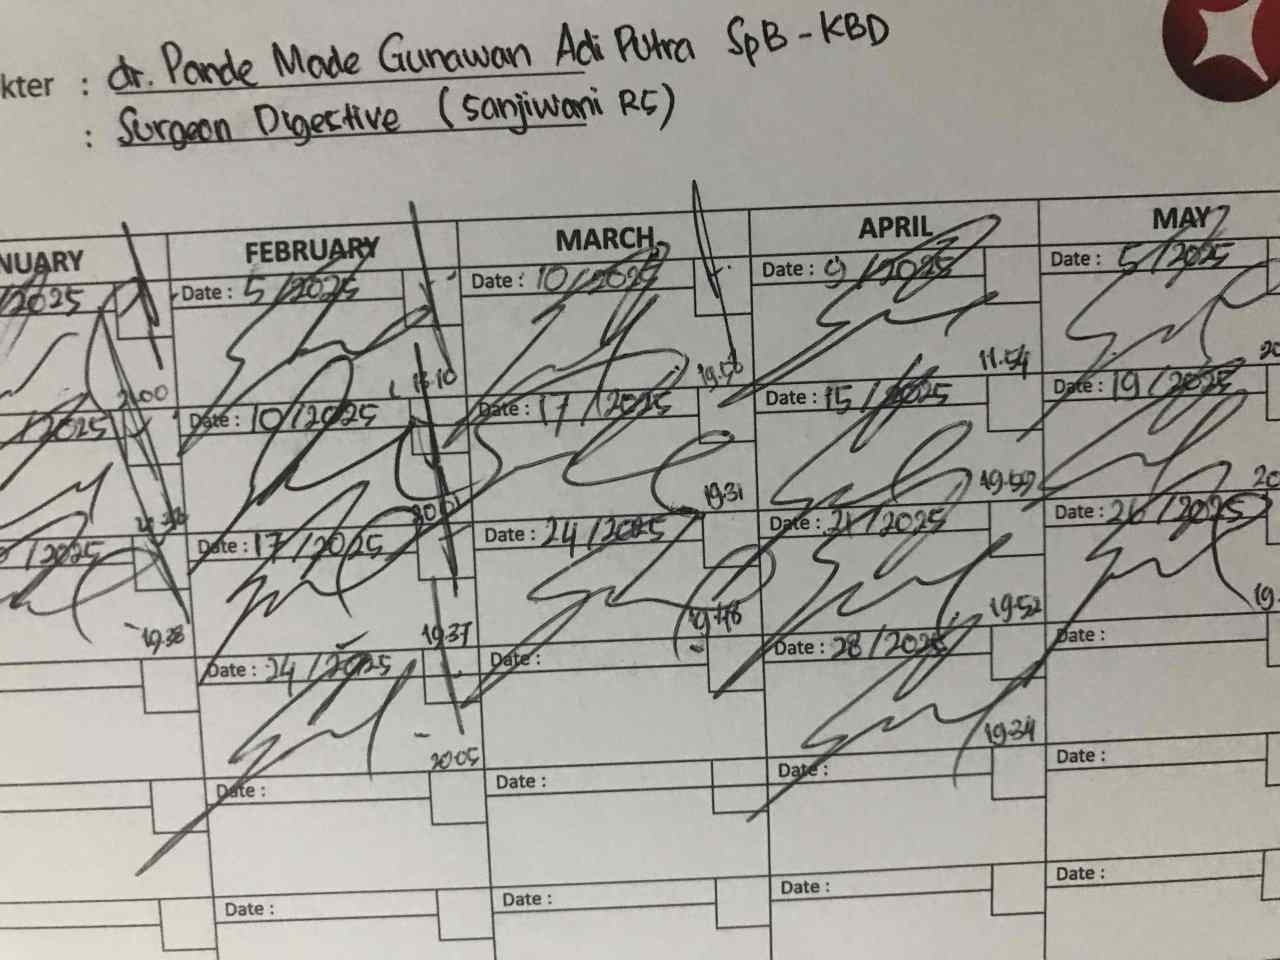 kter : dr. Pande Made Gunawan Adi Putra SpB-KBD
: Surgeon Digestive (Sanjiwani RS)
NUARY FEBRUARY MARCH APRIL MAY
/2025 Date : 5/2025 Date : 10/2025 Date : 9/2025 Date : 5/2025
13.10 19.56 11.54 20
/2025 Date : 10/2025 Date : 17/2025 Date : 15/2025 Date : 19/2025
19.31 19.59 20
/2025 Date : 17/2025 Date : 24/2025 Date : 21/2025 Date : 26/2025
19.38 19.37 19.48 19.52 19.
Date : 24/2025 Date : Date : 28/2025 Date :
20.05 19.34
Date : Date : Date : Date :
Date : Date : Date : Date :